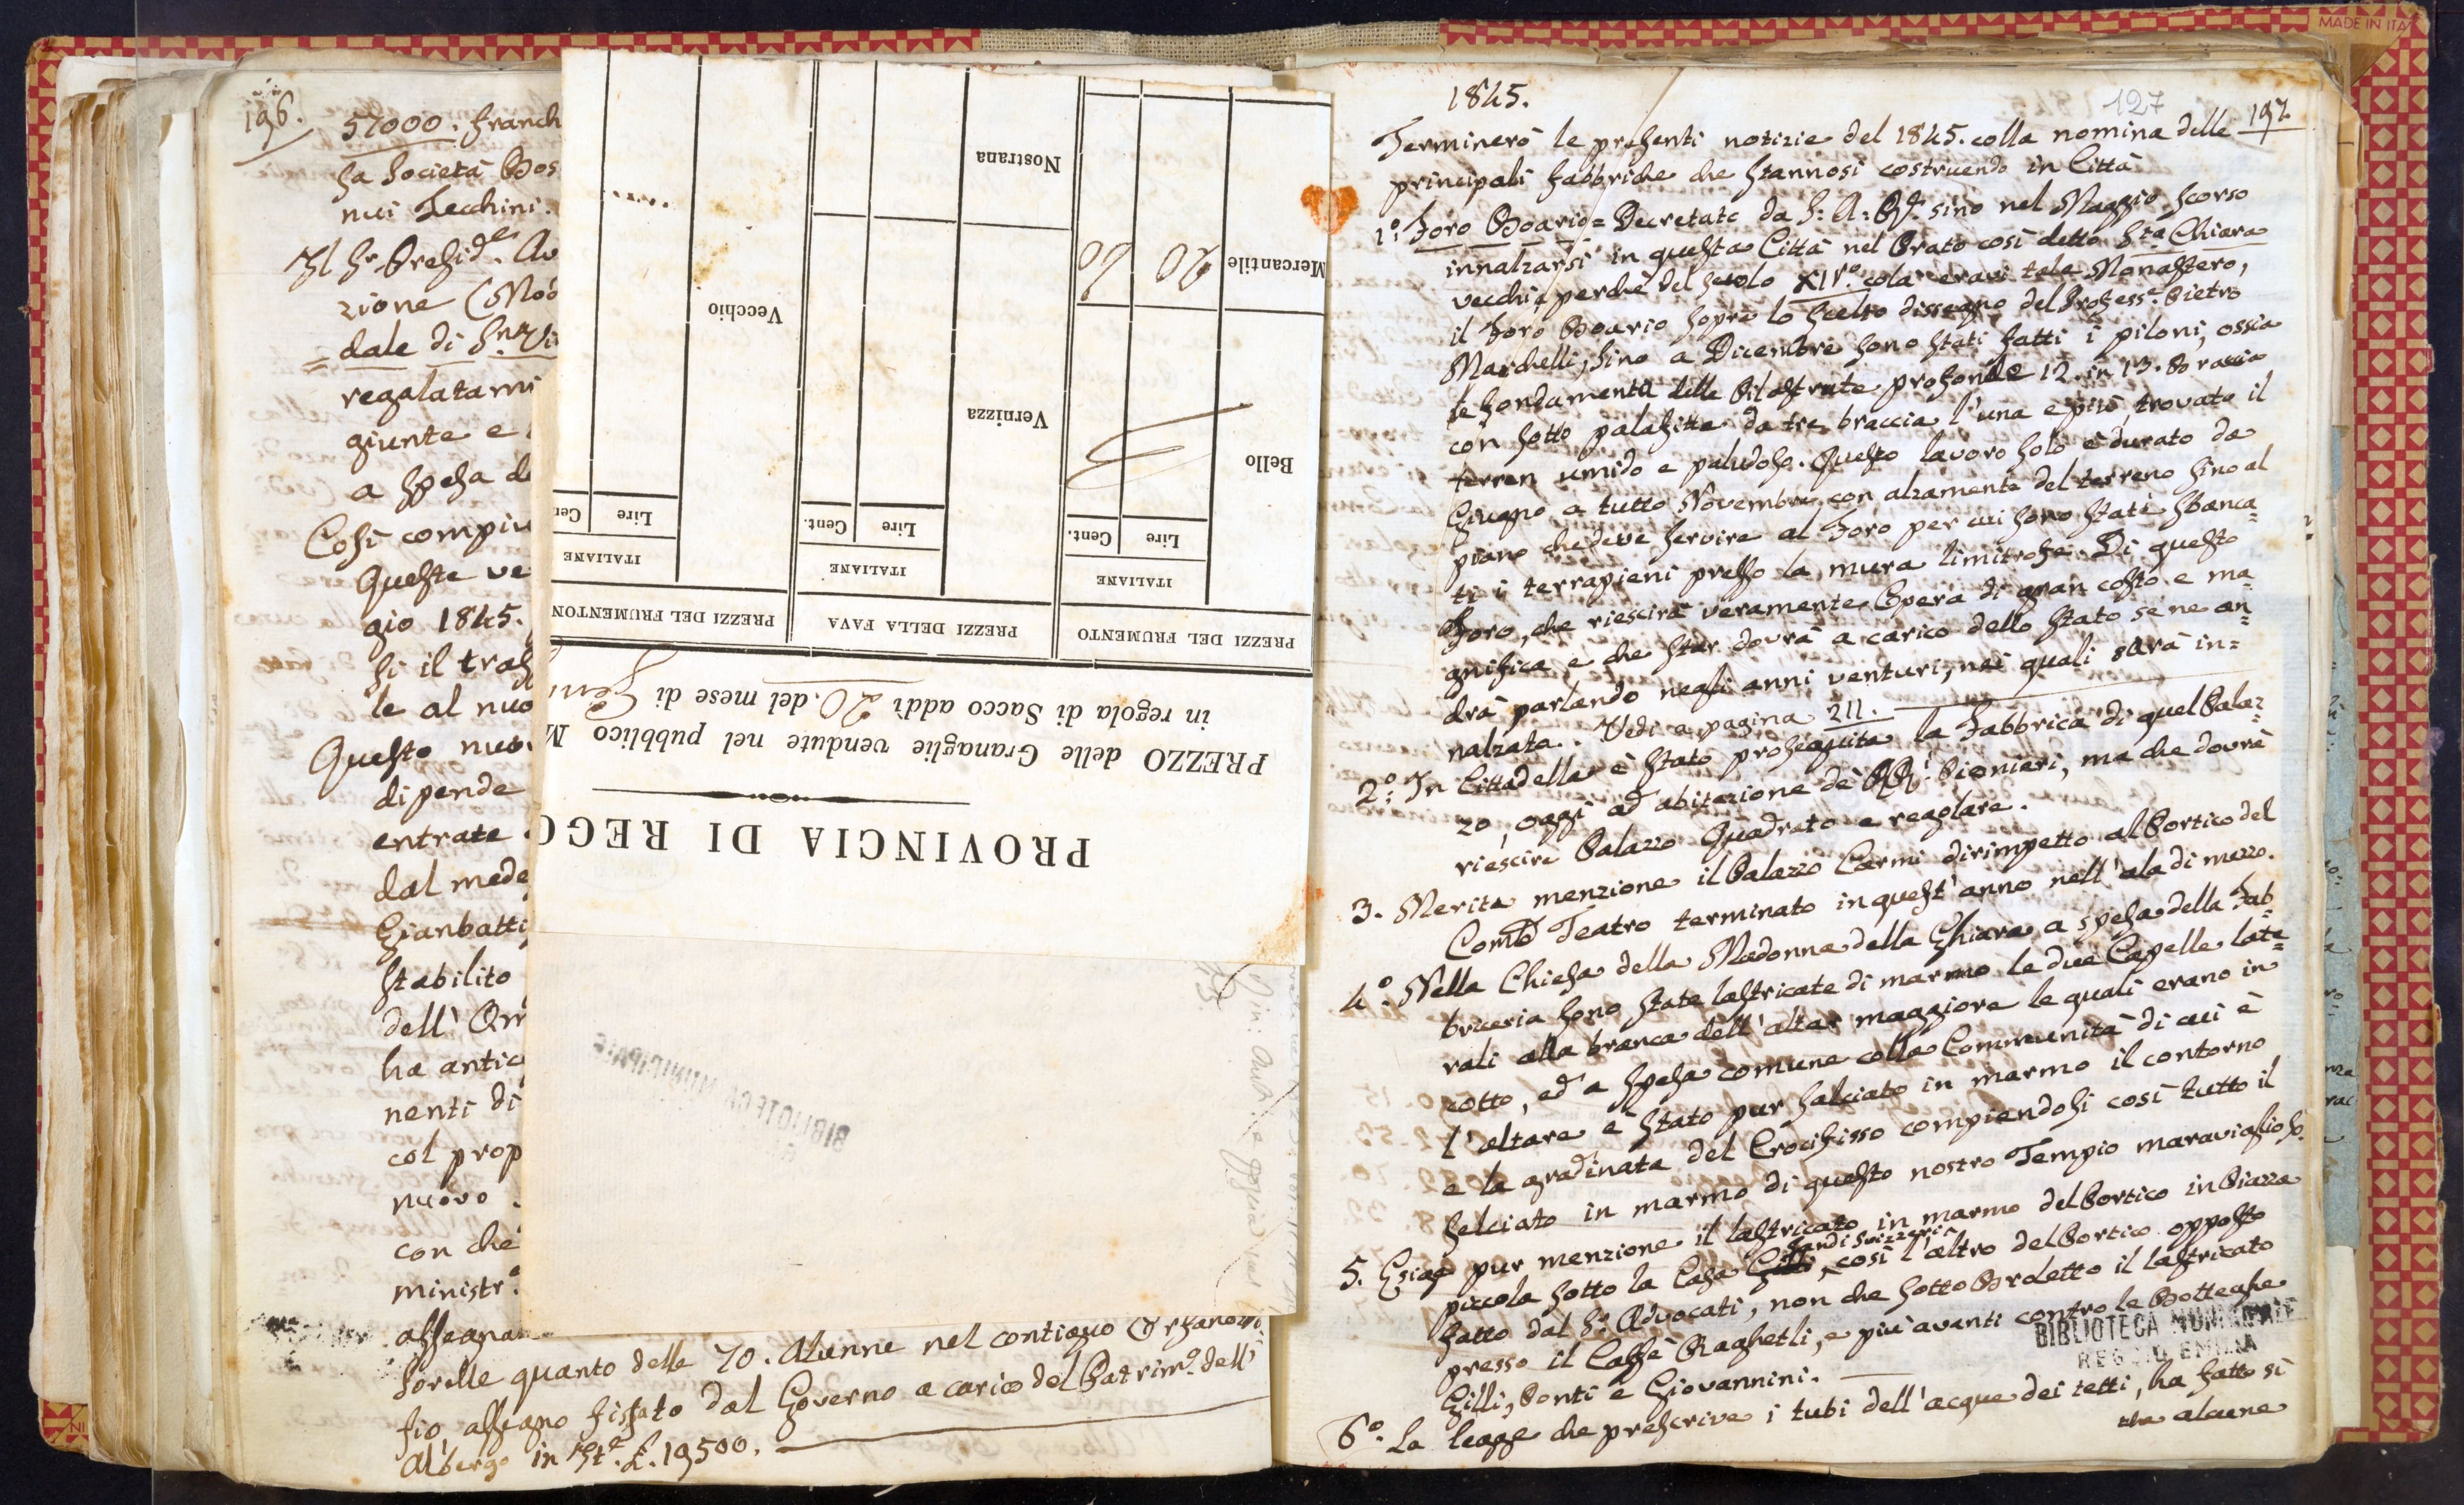 196.
57000. franch
la Società Bos
nui Tecchini.
Il Sr. Presid.e Av
zione (Mob
= dale di Sn. Vi
regalatami
giunte e
a spesa de
Così compiu
Queste ve
gio 1845.
si il tras
le al nuo
Questo nuov
dipende
entrate
dal mede
Gianbatti
stabilito
dell'
ha antic
nenti di
col prop
nuovo
con che
ministr.
assegna
sorelle quanto delle 70. Alunne nel contiguo Orfano
fio assegno fissato dal Governo a carico del Patrim.o dell'
Albergo in £. 19500.
PROVINCIA DI REGG
PREZZO delle Granaglie vendute nel pubblico M
in regola di Sacco addì 20. del mese di Genn
PREZZI DEL FRUMENTO
PREZZI DELLA FAVA
PREZZI DEL FRUMENTON
ITALIANE
ITALIANE
ITALIANE
Lire Cent.
Lire Cent.
Lire Cen
Bello
Vernizza
Vecchio
Mercantile 20 60
Nostrana
BIBLIOTECA MUNICIPALE
1845.
127
197
Terminerò le presenti notizie del 1845. colla nomina delle
principali fabbriche che stannosi costruendo in Città
1.o Foro Boario = Decretato da S: A: R. sino nel Maggio scorso
innalzarsi in questa Città nel Prato così detto Sta. Chiara
vecchia perchè del secolo XIVo. colà eravi tale Monastero,
il Foro Boario sopra lo scelto dissegno del Profess.e Pietro
Marchelli, sino a Dicembre sono stati fatti i piloni, ossia
le fondamenta delle Pilastrate profonde 12. in 13. Braccia
con sotto palafitta da tre braccia l'una e più, trovato il
terren umido e paludoso. Questo lavoro solo è durato da
Giugno a tutto Novembre con alzamento del terreno sino al
piano che deve servire al Foro per cui sono stati sbanca=
ti i terrapieni presso la mura limitrofa. Di questo
Foro, che riescirà veramente Opera di gran costo e ma=
gnifica e che star dovrà a carico dello Stato se ne an=
drà parlando negli anni venturi, nei quali sarà in=
nalzata. Vedi a pagina 211.
2.o In Cittadella è stato proseguita la Fabbrica di quel Palaz=
zo, oggi ad abitazione de' RR. Pionieri, ma che dovrà
riescire Palazzo Quadrato e regolare.
3. Merita menzione il Palazzo Carmi dirimpetto al Portico del
Com. Teatro terminato in quest'anno nell'ala di mezzo.
4.o Nella Chiesa della Madonna della Ghiara a spesa della Fab=
briceria sono state lastricate di marmo le due Capelle late=
rali alla branca dell'altar maggiore le quali erano in
cotto, ed a spesa comune colla Communità di cui è
l'altare è stato pur salciato in marmo il contorno
e la gradinata del Crocifisso compiendosi così tutto il
selciato in marmo di questo nostro Tempio maraviglioso.
5. Esige pur menzione il lastricato in marmo del Portico in Piazza
piccola sotto la Casa Landi Svizzeri, così l'altro del Portico opposto
fatto dal S.r Advocati, non che sotto Broletto il lastricato
presso il Caffè Raghetli, e più avanti contro le Botteghe
Gilli, Ponti e Giovannini.
6.o La legge che prescrive i tubi dell'acque dei tetti, ha fatto sì
che alcune
BIBLIOTECA MUNICIPALE
REGGIO EMILIA
MADE IN ITA